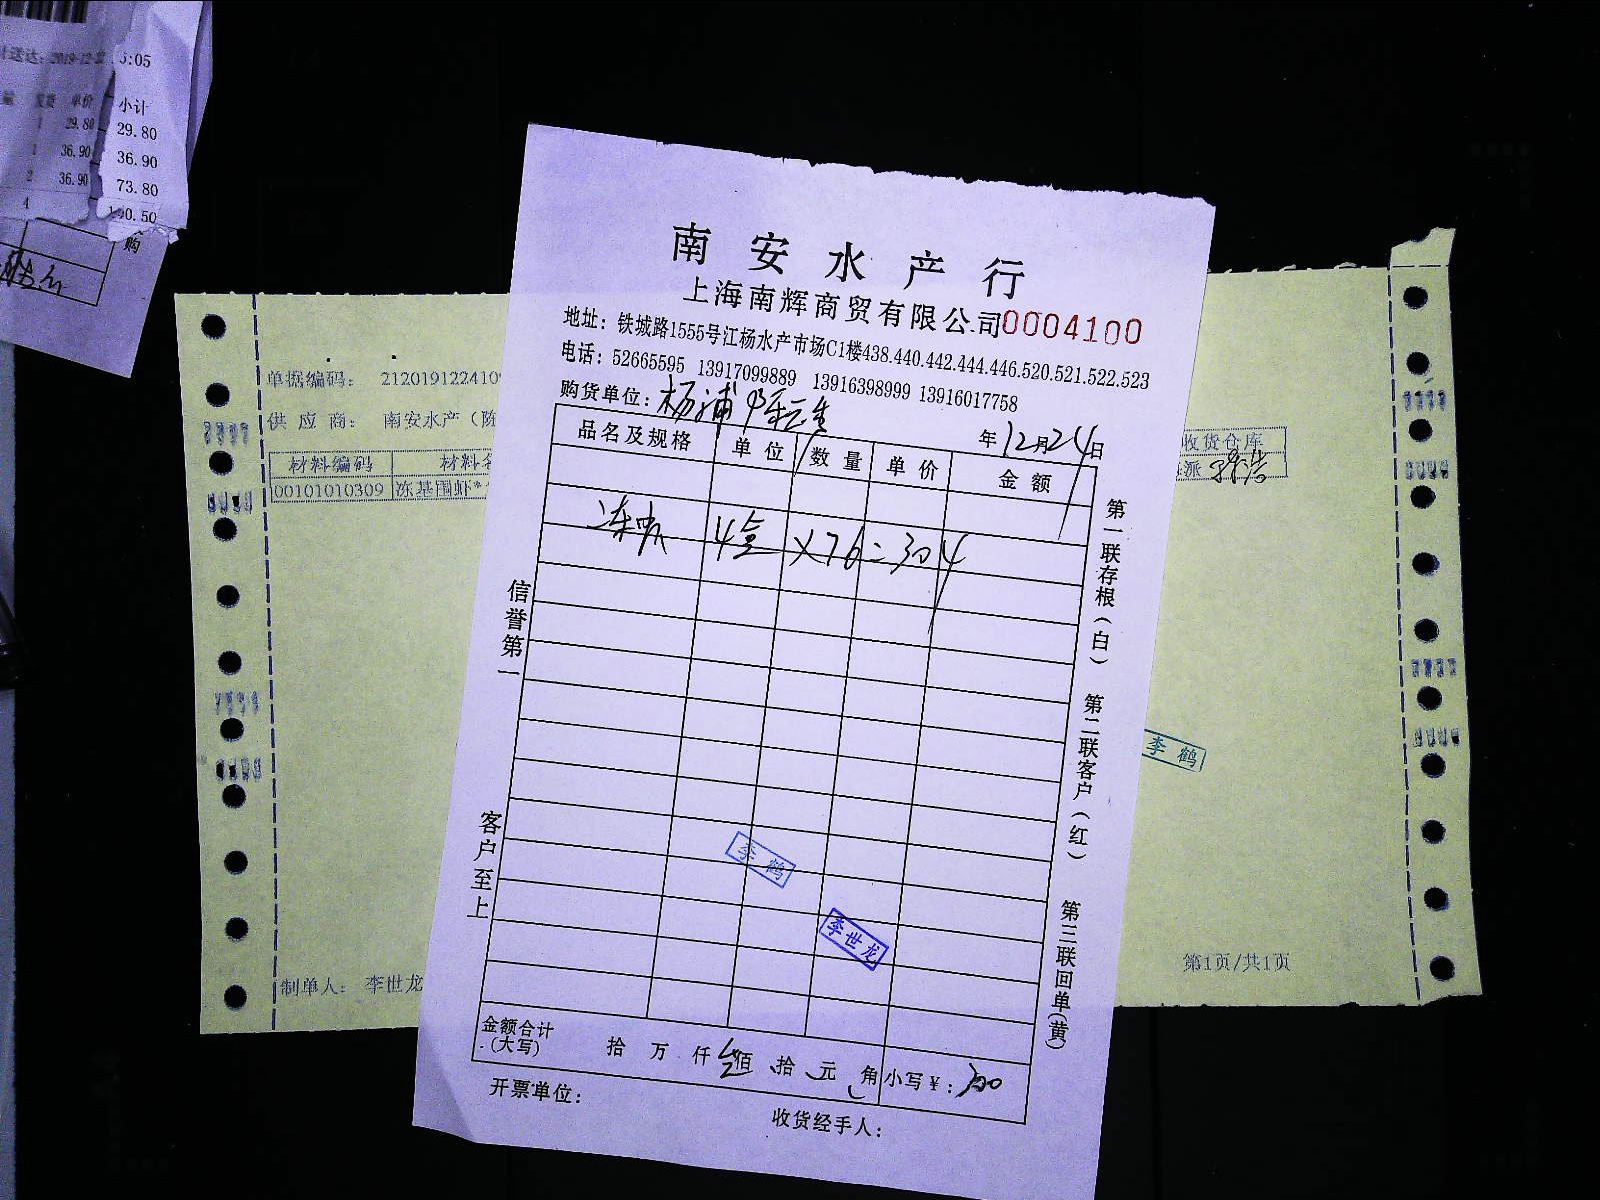 2019-12-2
5:05
单价
小计
1 29.80 29.80
1 36.90 36.90
2 36.90 73.80
4
购
单据编码： 2120191224109
供 应 商： 南安水产（陈
材料编码
00101010309 冻基围虾*
收货仓库
派
李 鹤
制单人： 李世龙
第1页/共1页
南安水产行
上海南辉商贸有限公司 0004100
地址：铁城路1555号江杨水产市场C1楼438.440.442.444.446.520.521.522.523
电话：52665595 13917099889 13916398999 13916017758
购货单位：杨浦
年12月24日
品名及规格 单位 数量 单价 金额
冻虾 4盒 ×76=304
信誉第一
客户至上
第一联存根（白） 第二联客户（红） 第三联回单（黄）
李 鹤
李世龙
金额合计（大写） 拾 万 仟 佰 拾 元 角 小写￥：300
开票单位：
收货经手人：